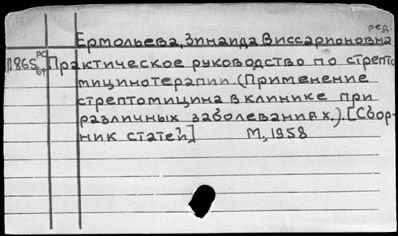 ред.
Ермольева, Зинаида Виссарионовна
1865 Практическое руководство по стрепто
мицинотерапии. (Применение
стрептомицина в клинике при
различных заболеваниях.) [Сбор-
ник статей] М., 1958